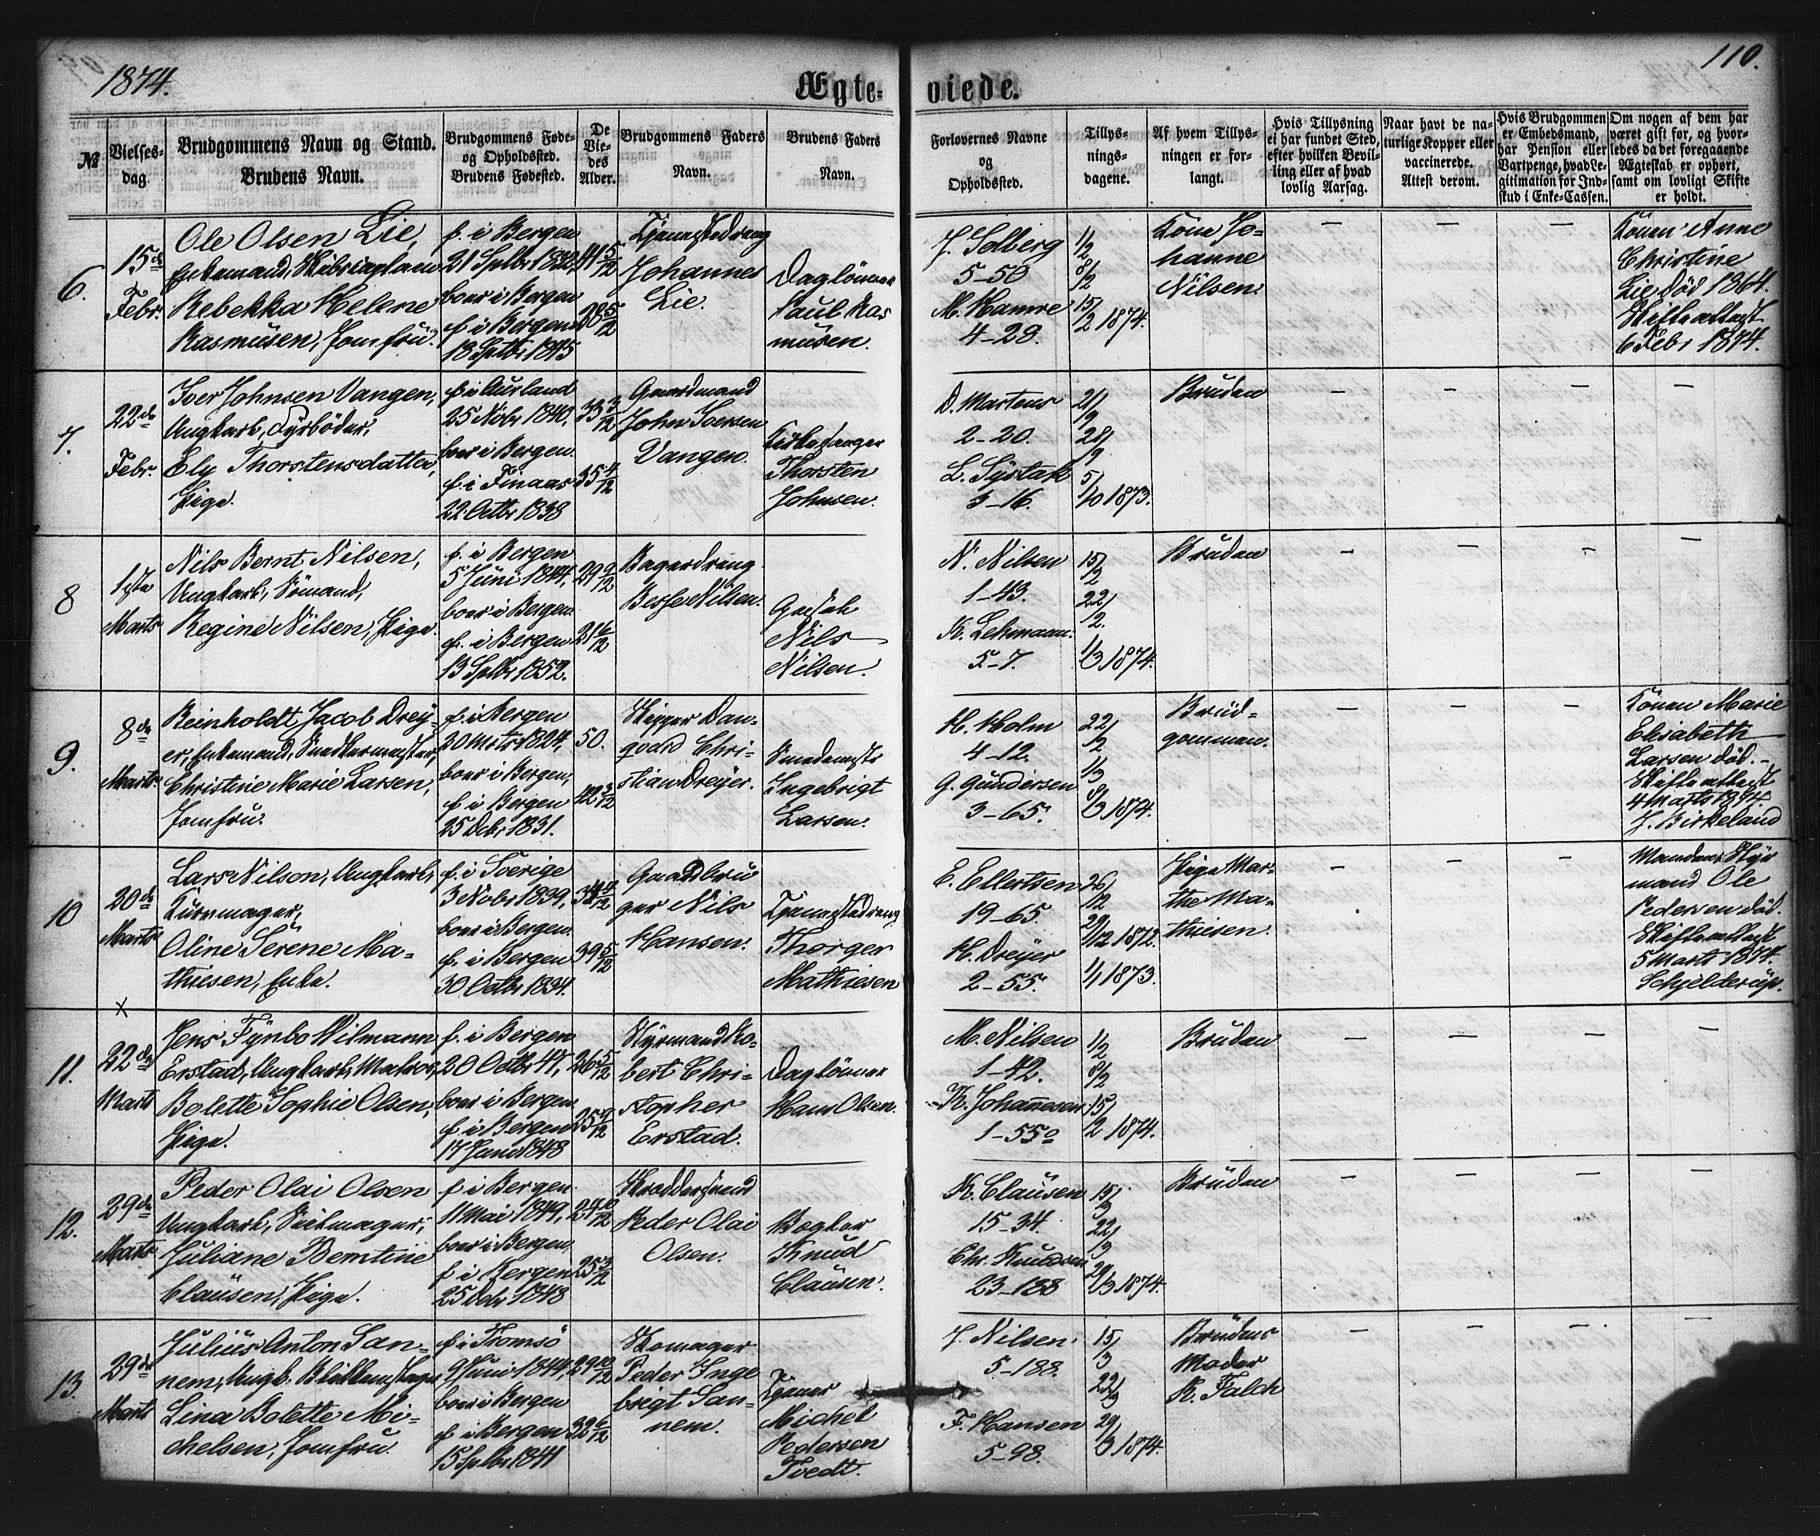 1874.
Ægteviede.
110.
№
Vielses-
dag.
Brudgommens Navn og Stand.
Brudens Navn.
Brudgommens Føde-
og Opholdssted.
Brudens Fødested.
De
Vie-
des
Alder.
Brudgommens Faders
Navn.
Brudens Faders
Navn.
Forlovernes Navne
og
Opholdssted.
Tillys-
nings-
dagene.
Af hvem Tillys-
ningen er for-
langt.
Hvis Tillysning
ei har fundet Sted,
efter hvilken Bevil-
ling eller af hvad
lovlig Aarsag.
Naar havt de na-
turlige Kopper eller
vaccinerede.
Attest derom.
Hvis Brudgommen
er Embedsmand,
har Pension eller
Vartpenge, hvad Le-
gitimation for Ind-
skud i Enke-Cassen.
Om nogen af dem har
været gift før, og hvor-
ledes da det foregaaende
Ægteskab er ophørt,
samt om lovligt Skifte
er holdt.
6.
15de
Febr.
Ole Olsen Lie,
Enkemand, Skibscaptain
Rebekka Helene
Rasmusen, Jomfru.
f. i Bergen
21 Sptbr 1832,
boer i Bergen
f. i Bergen
18 Sptbr 1845
41 5/12
28 5/12
Tjenestedreng
Johannes
Lie.
Daglønner
Paul Ras
musen.
J. Solberg
5-50
M. Hamre
4-28.
1/2
8/2
15/2 1874.
Kone Jo-
hanne
Nilsen.
Konen Anne
Christine
Lie død 1864.
Skifteattest
6 Febr 1874.
7.
22de
Febr.
Iver Johnsen Vangen,
Ungkarl, Fyrbøder,
Ely Thorstensdatter,
Pige.
f. i Aurland
25 Nobr 1840,
boer i Bergen.
f. i Finaas
22 Octbr 1838
33 3/12
35 4/12
Gaardmand
John Iversen
Vangen.
Kirkesanger
Thorsten
Johnsen.
D. Martens
2-20.
L. Systak
3-16.
21/9
28/9
5/10 1873.
Bruden
8
1ste
Marts
Nils Bernt Nilsen,
Ungkarl, Sømand,
Regine Nilsen, Pige.
f. i Bergen
5 Juni 1844,
boer i Bergen.
f. i Bergen
13 Sptbr 1852.
29 9/12
21 6/12
Bagerdreng
Besse Nilsen.
Nils
Nilsen.
N. Nilsen
1-43.
K. Lehmann.
5-7.
15/2
22/2.
1/3 1874.
Bruden
9.
8de
Marts.
Reinholdt Jacob Drey-
er, Enkemand, Snedkermester,
Christine Marie Larsen,
Jomfru.
f. i Bergen
20 Mrts 1824,
boer i Bergen,
f. i Bergen
25 Decbr 1831.
50.
42 3/12
Skipper Dan-
quard Chri-
stian Dreyer.
Smedemester
Ingebrigt
Larsen.
H. Holm
4-12.
G. Gundersen
3-65.
22/2
1/3
8/3 1874.
Brud-
gommen.
Konen Marie
Elisabeth
Larsen død.
Skifteattest
4 Marts 1874.
J. Birkeland
10
20de
Marts
Lars Nilson, Ungkarl,
Kurvmager,
Oline Serene Ma-
thiesen, Enke.
f. i Sverige
3 Nobr 1839,
boer i Bergen.
f. i Bergen
30 Octbr 1834.
34 4/12
39 5/12
Gaardbru
ger Nils
Hansen.
Tjenestedreng
Thorger
Mathiesen
E. Ellertsen
19-65.
H. Dreyer
2-55.
26/12
29/12 1872.
1/1 1873.
Pige Mar-
the Ma-
thiesen.
Manden Styr
mand Ole
Pedersen død.
Skifteattest
5 Marts 1874.
Schjelderup.
x
11.
22de
Marts
Jens Fynbo Wilmann
Erstad, Ungkarl, Matros,
Bolette Sophie Olsen,
Pige.
f. i Bergen
20 Octbr 47,
boer i Bergen.
f. i Bergen
17 Juni 1848
26 5/12
25 9/12
Styrmand Ro-
bert Chri-
stopher
Erstad.
Daglønner
Hans Olsen.
M. Nilsen
1-42.
K. Johannesen
1-55
1/2
8/2
15/2 1874.
Bruden
12.
29de
Marts
Peder Olai Olsen
Ungkarl, Seilmager,
Juliane Berntine
Clausen, Pige.
f. i Bergen.
11 Mai 1849,
boer i Bergen,
f. i Bergen
25 Decbr 1848
24 10/12
25 3/12
Skreddersvend
Peder Olai
Olsen.
Vægter
Knud
Clausen.
K. Clausen
15-34.
Chr. Knudsen
23-188
15/3
22/3
29/3 1874.
Bruden
13.
29de
Marts
Julius Anton San-
nem, Ungk. Blikkenslager
Lina Bolette Mi-
chelsen, Jomfru.
f. i Tromsö
9 Juni 1844,
boer i Bergen
f. i Bergen
15 Sptbr 1841
29 10/12
32 6/12
Skomager
Peder Inge
brigt San-
nem.
Tjener
Michel
Pedersen
Tvedt.
J. Nilsen.
5-188.
F. Hansen
5-98.
15/3
22/3
29/3 1874.
Brudens
Moder
K. Falch